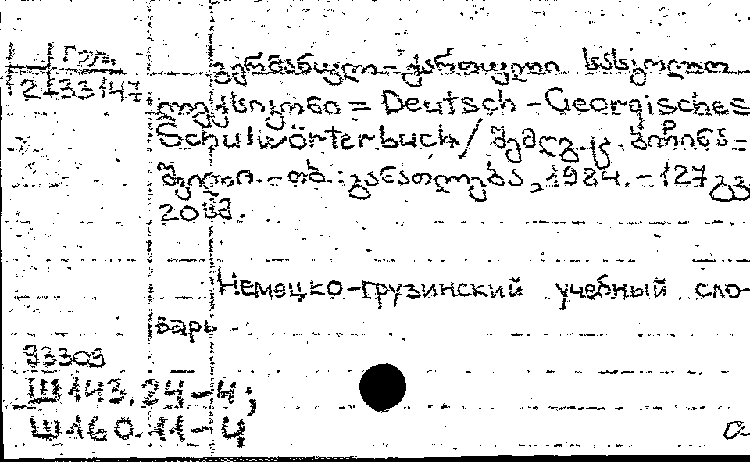 Груз.
2-33147
გერმანულ-ქართული სასკოლო
ლექსიკონი = Deutsch-Georgisches
Schulwörterbuch / შემდგ. კ.
შვილი. - თბ.: განათლება, 1984. - 127 გვ
20 სმ.
Немецко-грузинский учебный сло-
варь
93309
Ш143.24-4;
Ш160.11-4
a